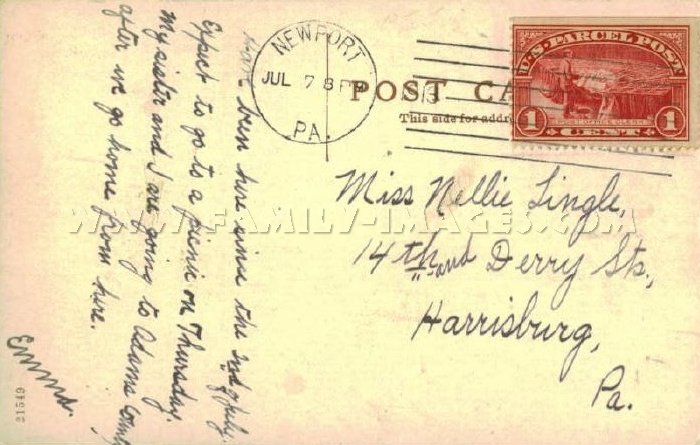 NEWPORT
JUL 7 8 PM
PA.
POST CA
This side for addre
U.S. PARCEL POST
1 1
CENT
POST OFFICE CLERK
Miss Nellie Lingle,
14th and Derry Sts.,
Harrisburg,
Pa.
Have been here since the 2nd of July.
Expect to go to a picnic on Thursday.
My sister and I are going to Adams County
after we go home from here.
Emma.
21549
WWW.FAMILY-IMAGES.COM